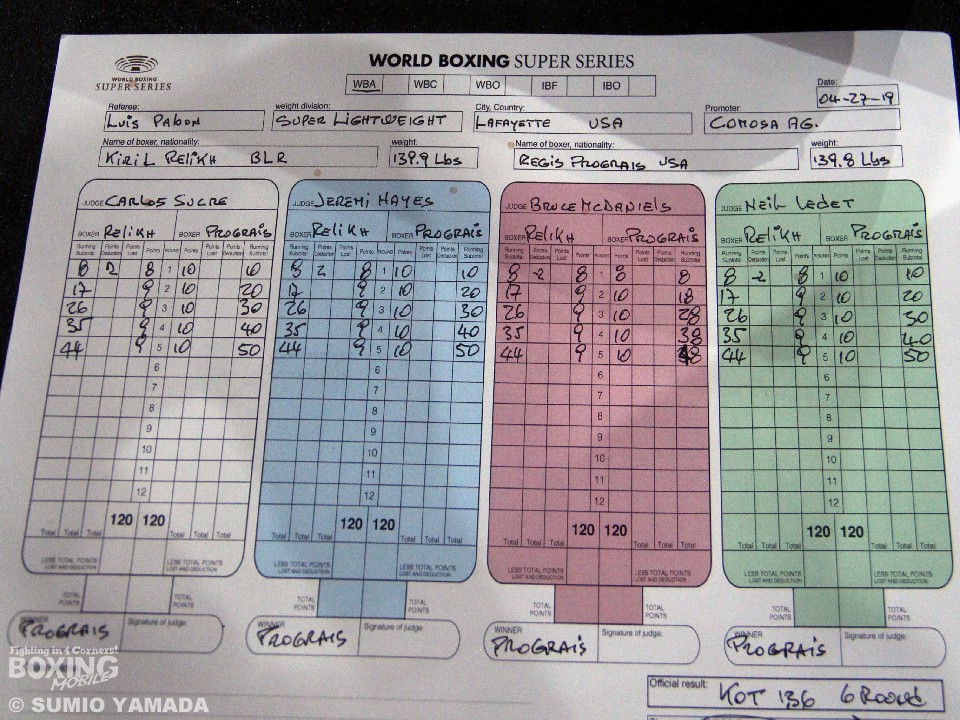 WORLD BOXING SUPER SERIES
WORLD BOXING
SUPER SERIES
WBA WBC WBO IBF IBO
Date:
04-27-19
Referee: weight division: City, Country: Promoter:
LUIS PABON SUPER LIGHTWEIGHT LAFAYETTE USA COMOSA AG.
Name of boxer, nationality: weight: Name of boxer, nationality: weight:
KIRIL RELIKH BLR 139.9 Lbs REGIS PROGRAIS USA 139.8 Lbs
JUDGE CARLOS SUCRE
BOXER RELIKH BOXER PROGRAIS
Running Subtotal Points Deduction Points Lost Points ROUND Points Points Lost Points Deduction Running Subtotal
8 2 8 1 10 10
17 9 2 10 20
26 9 3 10 30
35 9 4 10 40
44 9 5 10 50
6
7
8
9
10
11
12
120 120
Total Total Total Total Total Total
LESS TOTAL POINTS LOST AND DEDUCTION LESS TOTAL POINTS LOST AND DEDUCTION
TOTAL POINTS TOTAL POINTS
WINNER Signature of judge:
PROGRAIS
JUDGE JEREMI HAYES
BOXER RELIKH BOXER PROGRAIS
Running Subtotal Points Deduction Points Lost Points ROUND Points Points Lost Points Deduction Running Subtotal
8 2 8 1 10 10
17 9 2 10 20
26 9 3 10 30
35 9 4 10 40
44 9 5 10 50
6
7
8
9
10
11
12
120 120
Total Total Total Total Total Total
LESS TOTAL POINTS LOST AND DEDUCTION LESS TOTAL POINTS LOST AND DEDUCTION
TOTAL POINTS TOTAL POINTS
WINNER Signature of judge:
PROGRAIS
JUDGE BRUCE McDANIELS
BOXER RELIKH BOXER PROGRAIS
Running Subtotal Points Deduction Points Lost Points ROUND Points Points Lost Points Deduction Running Subtotal
8 -2 8 1 8 8
17 9 2 10 18
26 9 3 10 28
35 9 4 10 38
44 9 5 10 48
6
7
8
9
10
11
12
120 120
Total Total Total Total Total Total
LESS TOTAL POINTS LOST AND DEDUCTION LESS TOTAL POINTS LOST AND DEDUCTION
TOTAL POINTS TOTAL POINTS
WINNER Signature of judge:
PROGRAIS
JUDGE NEIL LEDET
BOXER RELIKH BOXER PROGRAIS
Running Subtotal Points Deduction Points Lost Points ROUND Points Points Lost Points Deduction Running Subtotal
8 -2 8 1 10 10
17 9 2 10 20
26 9 3 10 30
35 9 4 10 40
44 9 5 10 50
6
7
8
9
10
11
12
120 120
Total Total Total Total Total Total
LESS TOTAL POINTS LOST AND DEDUCTION LESS TOTAL POINTS LOST AND DEDUCTION
TOTAL POINTS TOTAL POINTS
WINNER Signature of judge:
PROGRAIS
Official result: KOT 136 6 ROUND
Fighting in 4 Corners!
BOXING
MOBILE
© SUMIO YAMADA